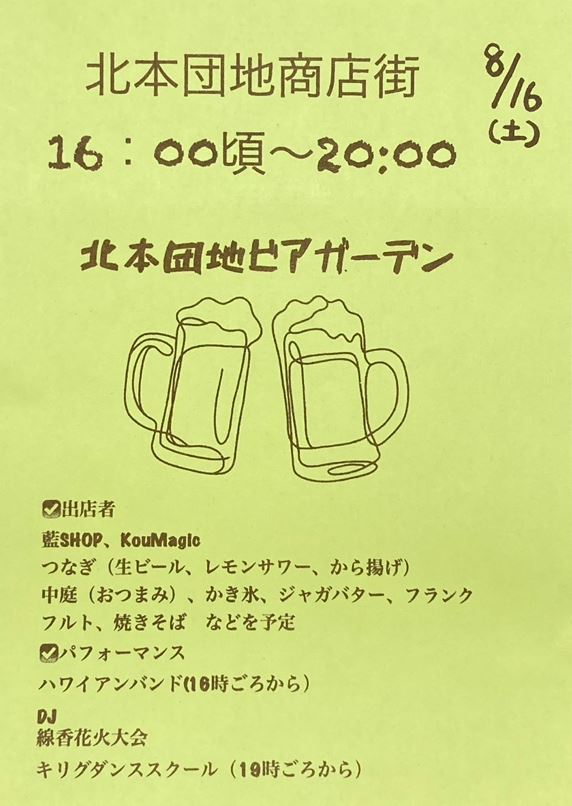 北本団地商店街
8/16
(土)
16：00頃〜20:00
北本団地ビアガーデン
☑出店者
藍SHOP、KouMagic
つなぎ（生ビール、レモンサワー、から揚げ）
中庭（おつまみ）、かき氷、ジャガバター、フランク
フルト、焼きそば　などを予定
☑パフォーマンス
ハワイアンバンド(16時ごろから）
DJ
線香花火大会
キリグダンススクール（19時ごろから）